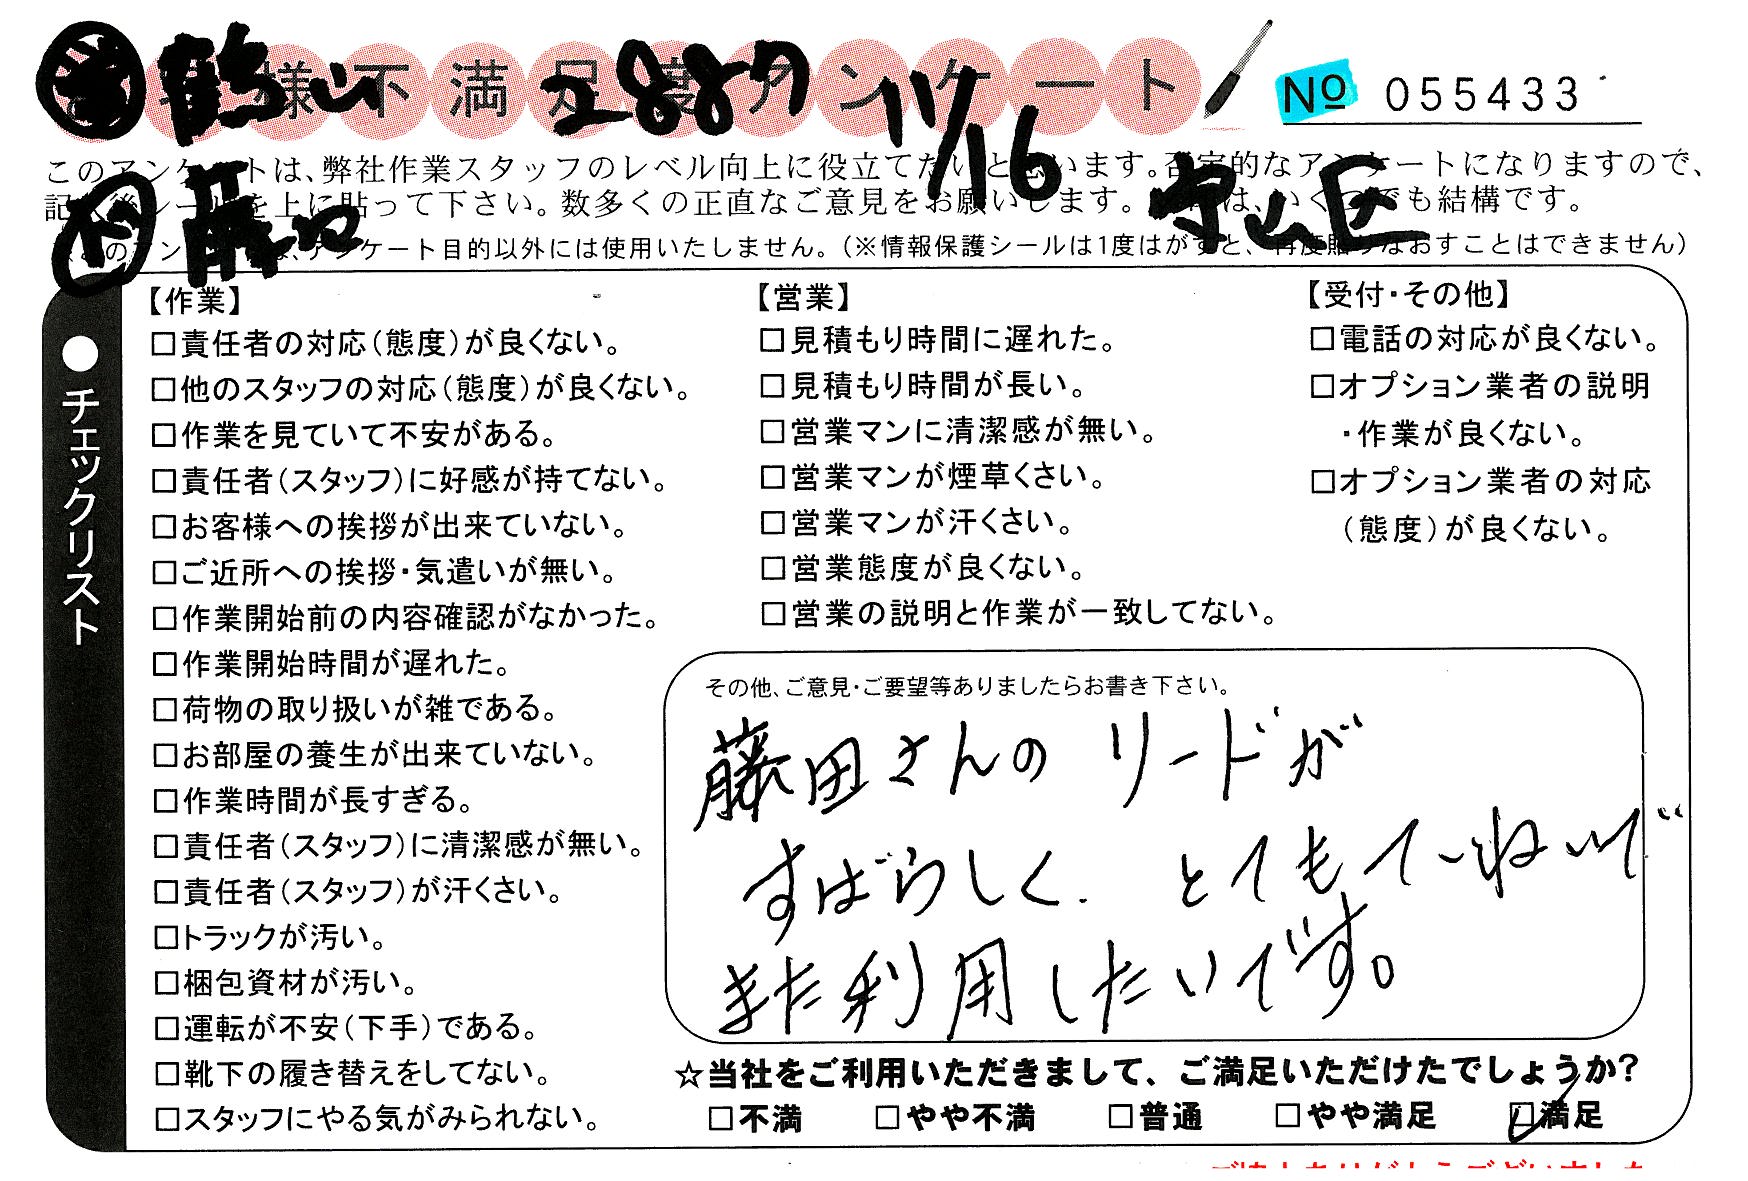 様不満足度アンケート
鶴山 2887 11/16
No 055433
このアンケートは、弊社作業スタッフのレベル向上に役立てたいと思います。否定的なアンケートになりますので、
記入後シールを上に貼って下さい。数多くの正直なご意見をお願いします。は、いくつでも結構です。
守山区
アンケート目的以外には使用いたしません。(※情報保護シールは1度はがすと、再度貼りなおすことはできません)
●チェックリスト
【作業】
□責任者の対応(態度)が良くない。
□他のスタッフの対応(態度)が良くない。
□作業を見ていて不安がある。
□責任者(スタッフ)に好感が持てない。
□お客様への挨拶が出来ていない。
□ご近所への挨拶・気遣いが無い。
□作業開始前の内容確認がなかった。
□作業開始時間が遅れた。
□荷物の取り扱いが雑である。
□お部屋の養生が出来ていない。
□作業時間が長すぎる。
□責任者(スタッフ)に清潔感が無い。
□責任者(スタッフ)が汗くさい。
□トラックが汚い。
□梱包資材が汚い。
□運転が不安(下手)である。
□靴下の履き替えをしてない。
□スタッフにやる気がみられない。
【営業】
□見積もり時間に遅れた。
□見積もり時間が長い。
□営業マンに清潔感が無い。
□営業マンが煙草くさい。
□営業マンが汗くさい。
□営業態度が良くない。
□営業の説明と作業が一致してない。
【受付・その他】
□電話の対応が良くない。
□オプション業者の説明
・作業が良くない。
□オプション業者の対応
(態度)が良くない。
その他、ご意見・ご要望等ありましたらお書き下さい。
藤田さんのリードが
すばらしく、とてもていねいで
また利用したいです。
☆当社をご利用いただきまして、ご満足いただけたでしょうか?
□不満 □やや不満 □普通 □やや満足 ☑満足